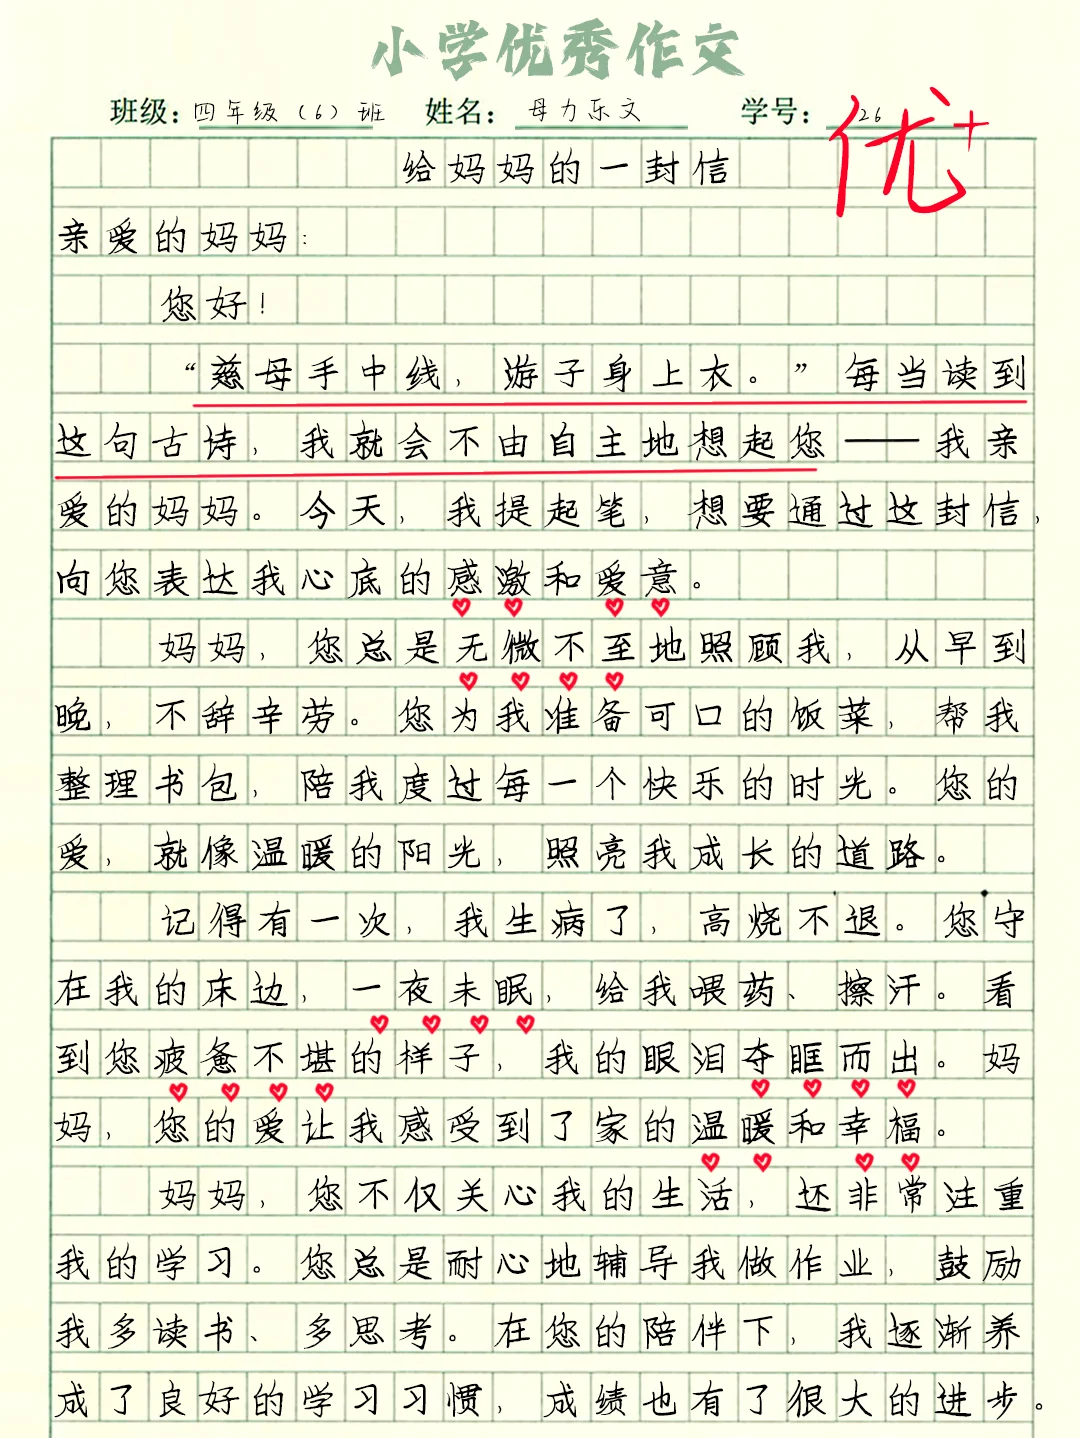 小学优秀作文
班级：四年级（6）班 姓名：母力乐文 学号：26
优+
给妈妈的一封信
亲爱的妈妈：
您好！
“慈母手中线，游子身上衣。”每当读到
这句古诗，我就会不由自主地想起您——我亲
爱的妈妈。今天，我提起笔，想要通过这封信，
向您表达我心底的感激和爱意。
妈妈，您总是无微不至地照顾我，从早到
晚，不辞辛劳。您为我准备可口的饭菜，帮我
整理书包，陪我度过每一个快乐的时光。您的
爱，就像温暖的阳光，照亮我成长的道路。
记得有一次，我生病了，高烧不退。您守
在我的床边，一夜未眠，给我喂药、擦汗。看
到您疲惫不堪的样子，我的眼泪夺眶而出。妈
妈，您的爱让我感受到了家的温暖和幸福。
妈妈，您不仅关心我的生活，还非常注重
我的学习。您总是耐心地辅导我做作业，鼓励
我多读书、多思考。在您的陪伴下，我逐渐养
成了良好的学习习惯，成绩也有了很大的进步。